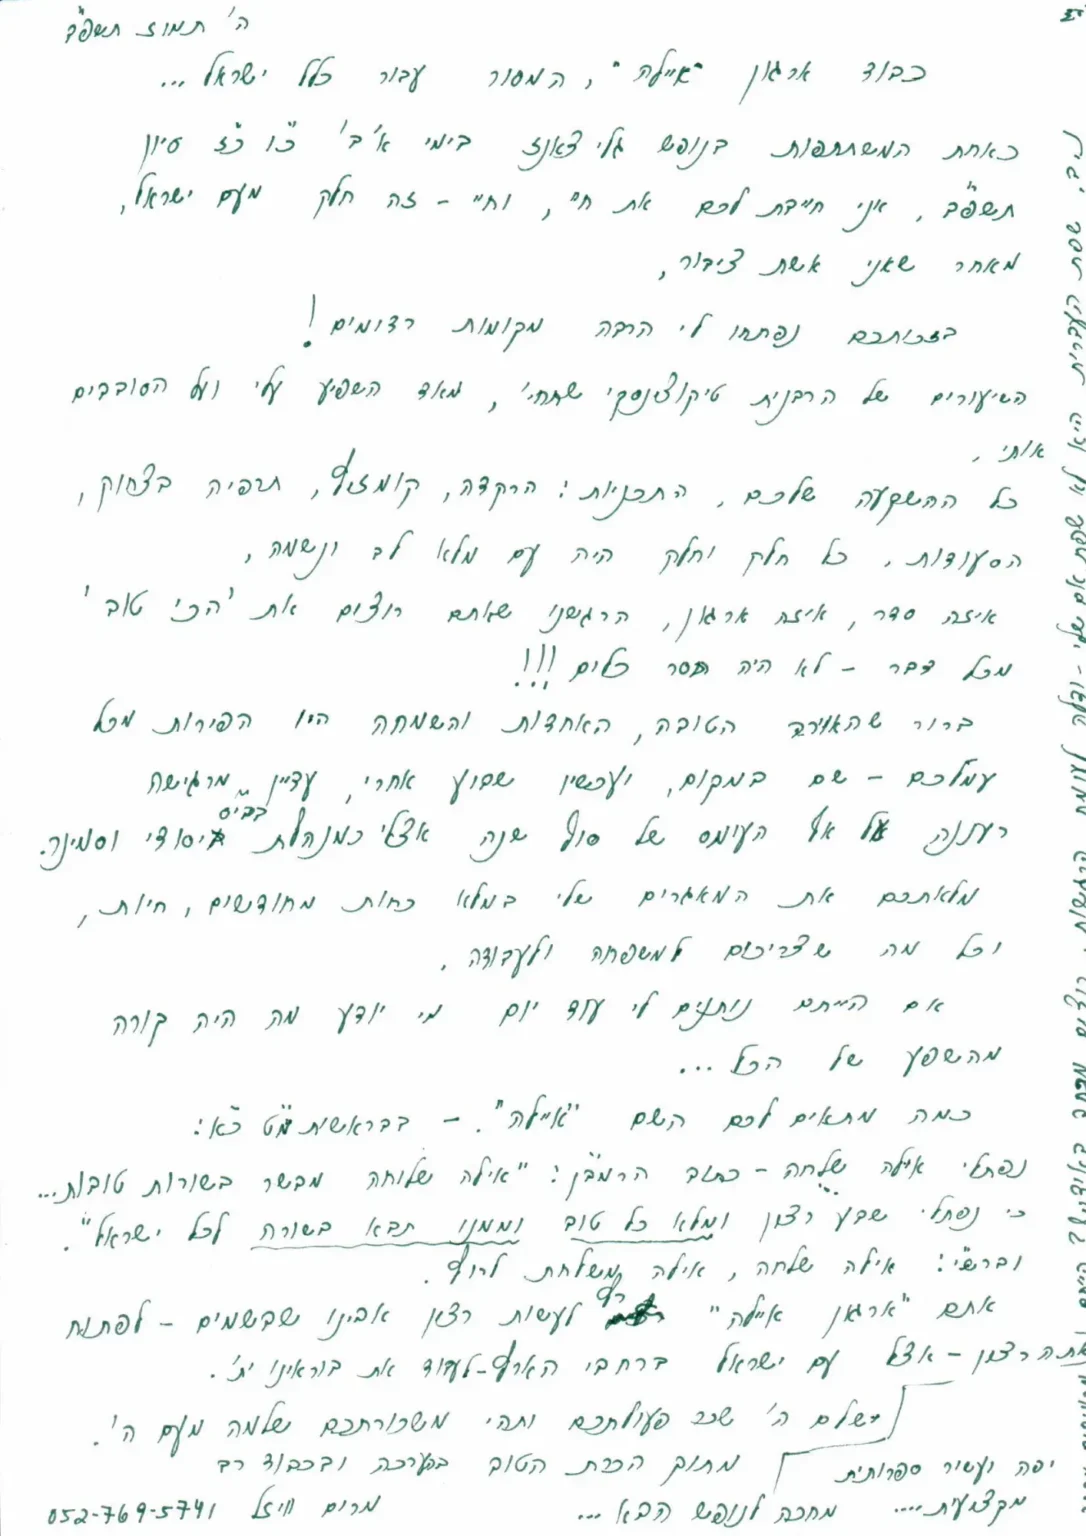 ה' תמוז תשפ"ב
כבוד ארגון "איילה", המסור עבור כלל ישראל...
כאחת המשתתפות בנופש גלי צאנז בימי א' ב' כ"ו כ"ז סיון
תשפ"ב, אני חייבת לכם את חיי, וחיי - זה חלק מעם ישראל,
מאחר שאני אשת ציבור,
בזכותכם נפתחו לי הרבה מקומות רדומים!
השיעורים של הרבנית טיקוצינסקי שתחי', מאד השפיע עלי ועל הסובבים
אותי.
כל ההשקעה שלכם, התכניות: הרקדה, קומזיץ, תרפיה בצחוק,
הסעודות. כל חלק וחלק היה עם מלא לב ונשמה,
איזה סדר, איזה ארגון, הרגשנו שאתם רוצים את 'הכי טוב'
מכל דבר - לא היה חסר כלום!!!
ברור שהאוירה הטובה, האחדות והשמחה היו הפירות מכל
עמלכם - שם במקום, ועכשיו שבוע אחרי, עדיין מרגישה
רעננה על אף העומס של סוף שנה אצלי כמנהלת בבי"ס יסודי וסמינר.
מלאתכם את המאגרים שלי במלא כחות מחודשים, חיות,
וכל מה שצריכים למשפחה ולעבודה.
אם הייתם נותנים לי עוד יום מי יודע מה היה קורה
מהשפע של הכל...
כמה מתאים לכם השם "איילה". - בבראשית מ"ט כ"א:
נפתלי אילה שלחה - כתוב הרמב"ן: "אילה שלוחה מבשר בשורות טובות...
כי נפתלי שבע רצון ומלא כל טוב וממנו תבא בשורה לכל ישראל".
וברש"י: אילה שלחה, אילה משלחת לרוץ.
אתם "ארגון איילה" רץ לעשות רצון אבינו שבשמים - לפתוח
רצון - אצל עם ישראל ברחבי הארץ - לעבוד את בוראינו ית'.
ישלם ה' שכר פעולתכם ותהי משכורתכם שלמה מעם ה'.
מתוך הכרת הטוב בהערכה ובכבוד רב
יפה ועשיר ספרותית
מקצועית.... מחכה לנופש הבא...
מרים וויזל 052-769-5741